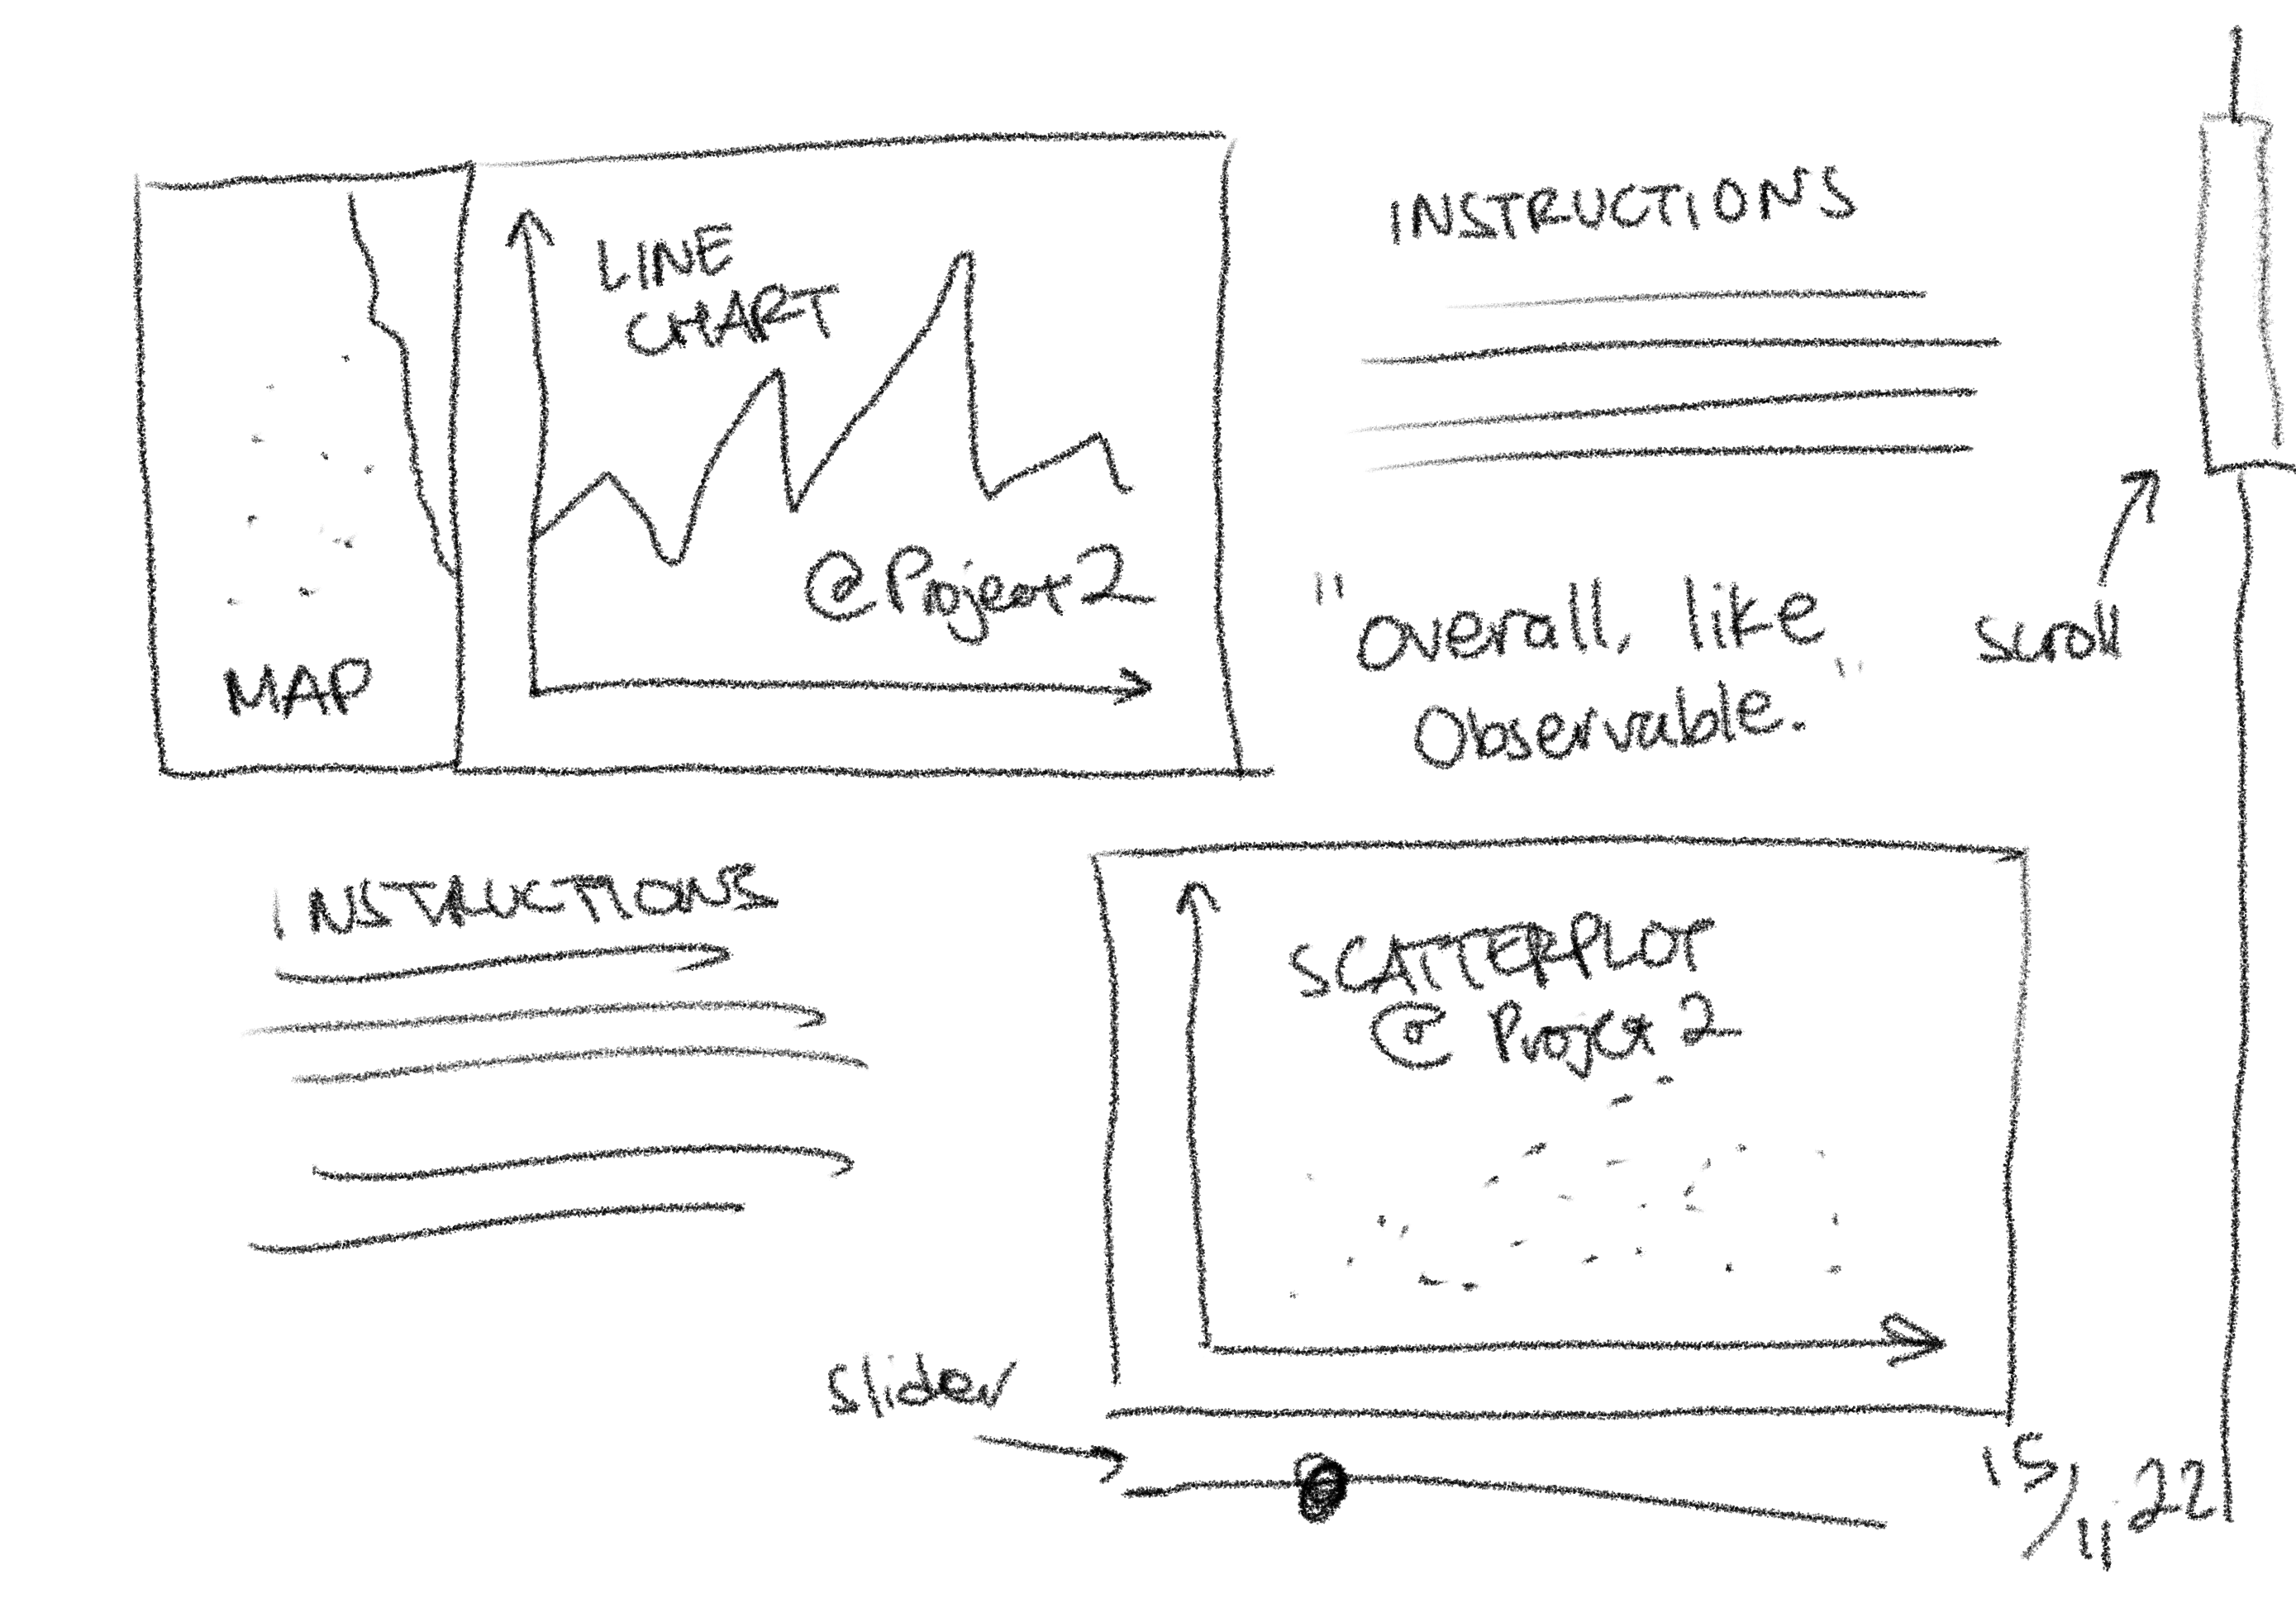 LINE
CHART
@Project 2
MAP
INSTRUCTIONS
"Overall, like
Observable."
scroll
INSTRUCTIONS
SCATTERPLOT
@ Project 2
slider
15/11 22